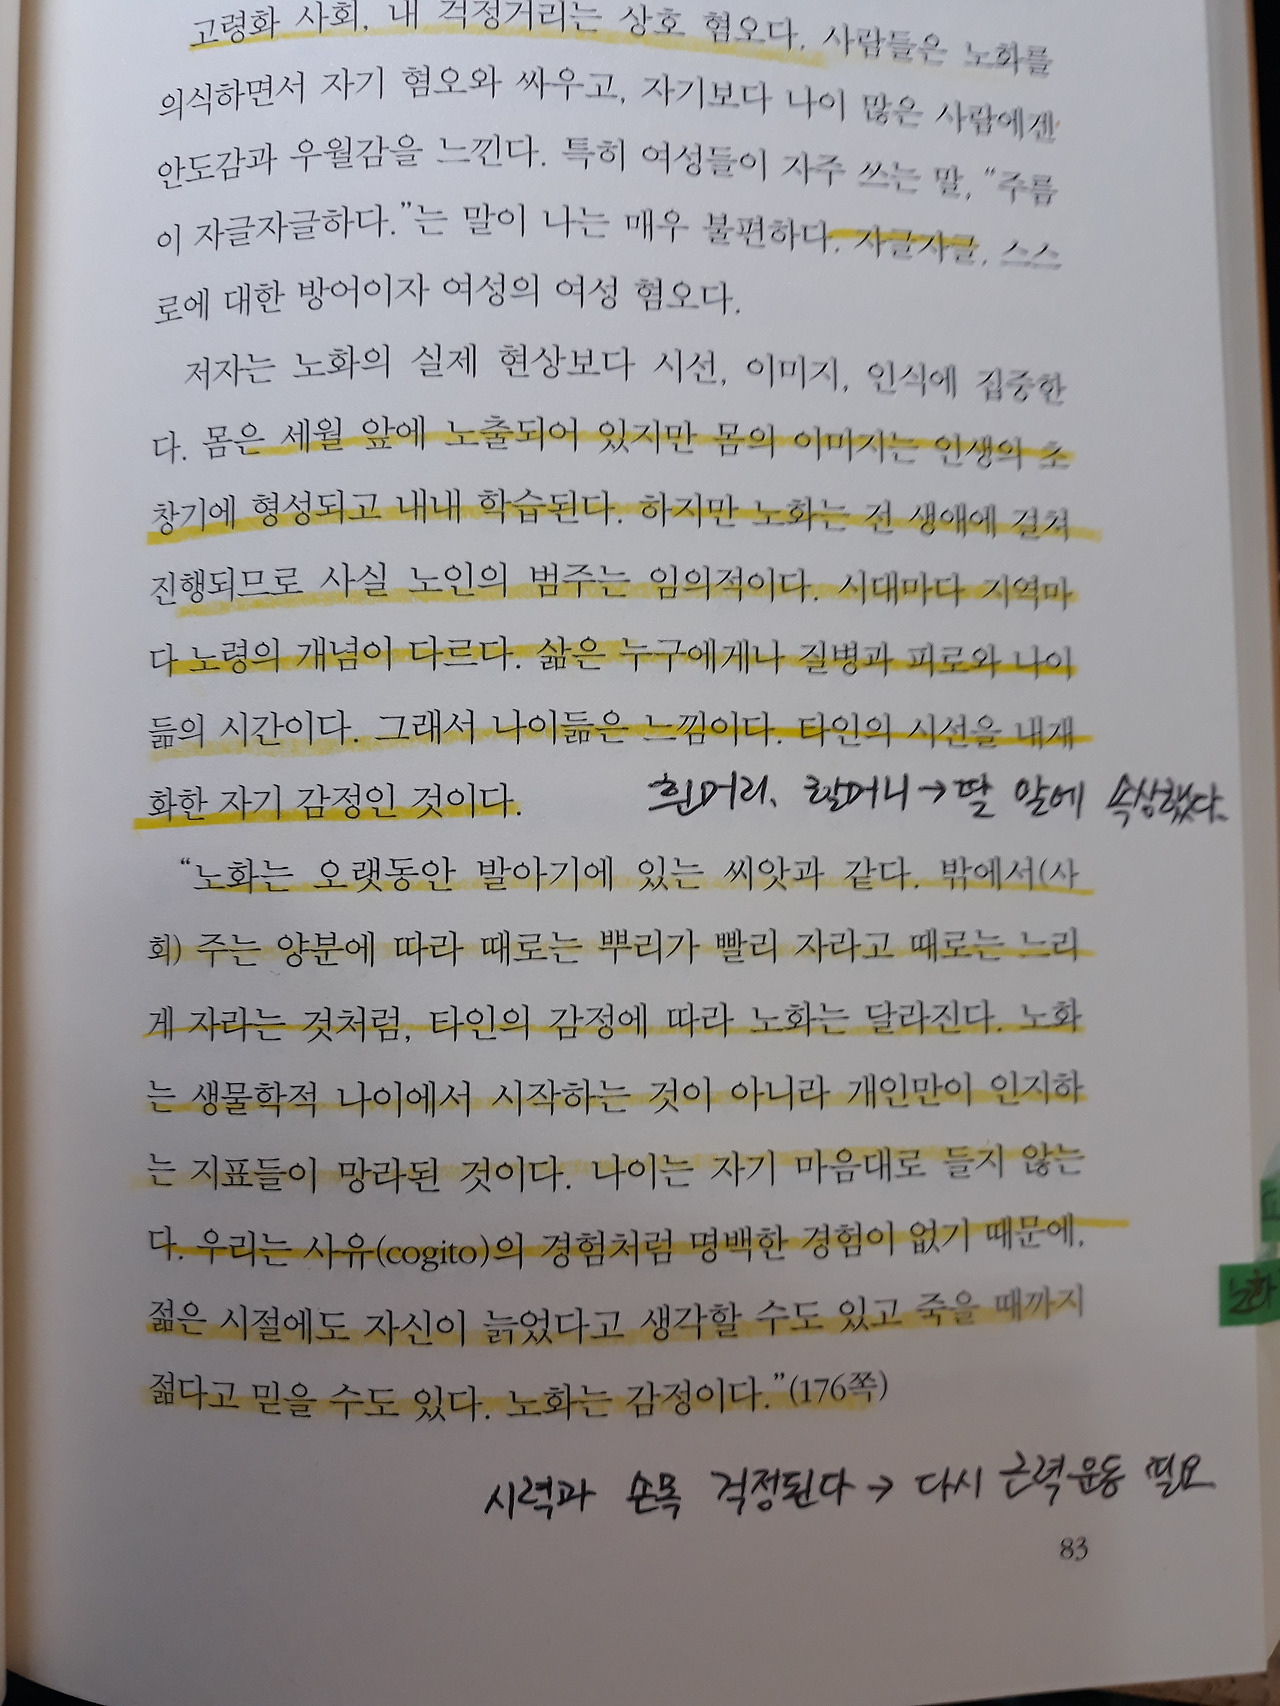 고령화 사회, 내 걱정거리는 상호 혐오다. 사람들은 노화를
의식하면서 자기 혐오와 싸우고, 자기보다 나이 많은 사람에겐
안도감과 우월감을 느낀다. 특히 여성들이 자주 쓰는 말, “주름
이 자글자글하다.”는 말이 나는 매우 불편하다. 자글자글, 스스
로에 대한 방어이자 여성의 여성 혐오다.
저자는 노화의 실제 현상보다 시선, 이미지, 인식에 집중한
다. 몸은 세월 앞에 노출되어 있지만 몸의 이미지는 인생의 초
창기에 형성되고 내내 학습된다. 하지만 노화는 전 생애에 걸쳐
진행되므로 사실 노인의 범주는 임의적이다. 시대마다 지역마
다 노령의 개념이 다르다. 삶은 누구에게나 질병과 피로와 나이
듦의 시간이다. 그래서 나이듦은 느낌이다. 타인의 시선을 내재
화한 자기 감정인 것이다.
흰머리, 할머니→딸 말에 속상했다.
“노화는 오랫동안 발아기에 있는 씨앗과 같다. 밖에서(사
회) 주는 양분에 따라 때로는 뿌리가 빨리 자라고 때로는 느리
게 자라는 것처럼, 타인의 감정에 따라 노화는 달라진다. 노화
는 생물학적 나이에서 시작하는 것이 아니라 개인만이 인지하
는 지표들이 망라된 것이다. 나이는 자기 마음대로 들지 않는
다. 우리는 사유(cogito)의 경험처럼 명백한 경험이 없기 때문에,
젊은 시절에도 자신이 늙었다고 생각할 수도 있고 죽을 때까지
젊다고 믿을 수도 있다. 노화는 감정이다.”(176쪽)
시력과 손목 걱정된다→ 다시 근력운동 필요
83
노화